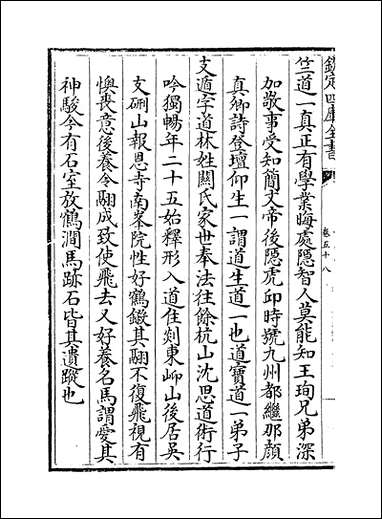 欽定四庫全書
卷五十八
竺道一真正有學業晦處隱智人莫能知王珣兄弟深
加敬事受知簡文帝後隱虎邱時號九州都繼那顔
真卿詩登壇仰生一謂道生道一也道寶道一弟子
支遁字道林姓闗氏家世奉法往餘杭山沈思道術行
吟獨暢年二十五始釋形入道住剡東岇山後居吳
支硎山報恩寺南峯院性好鶴鎩其翮不復飛視有
懊喪意後養令翮成致使飛去又好養名馬謂愛其
神駿今有石室放鶴澗馬跡石皆其遺蹤也